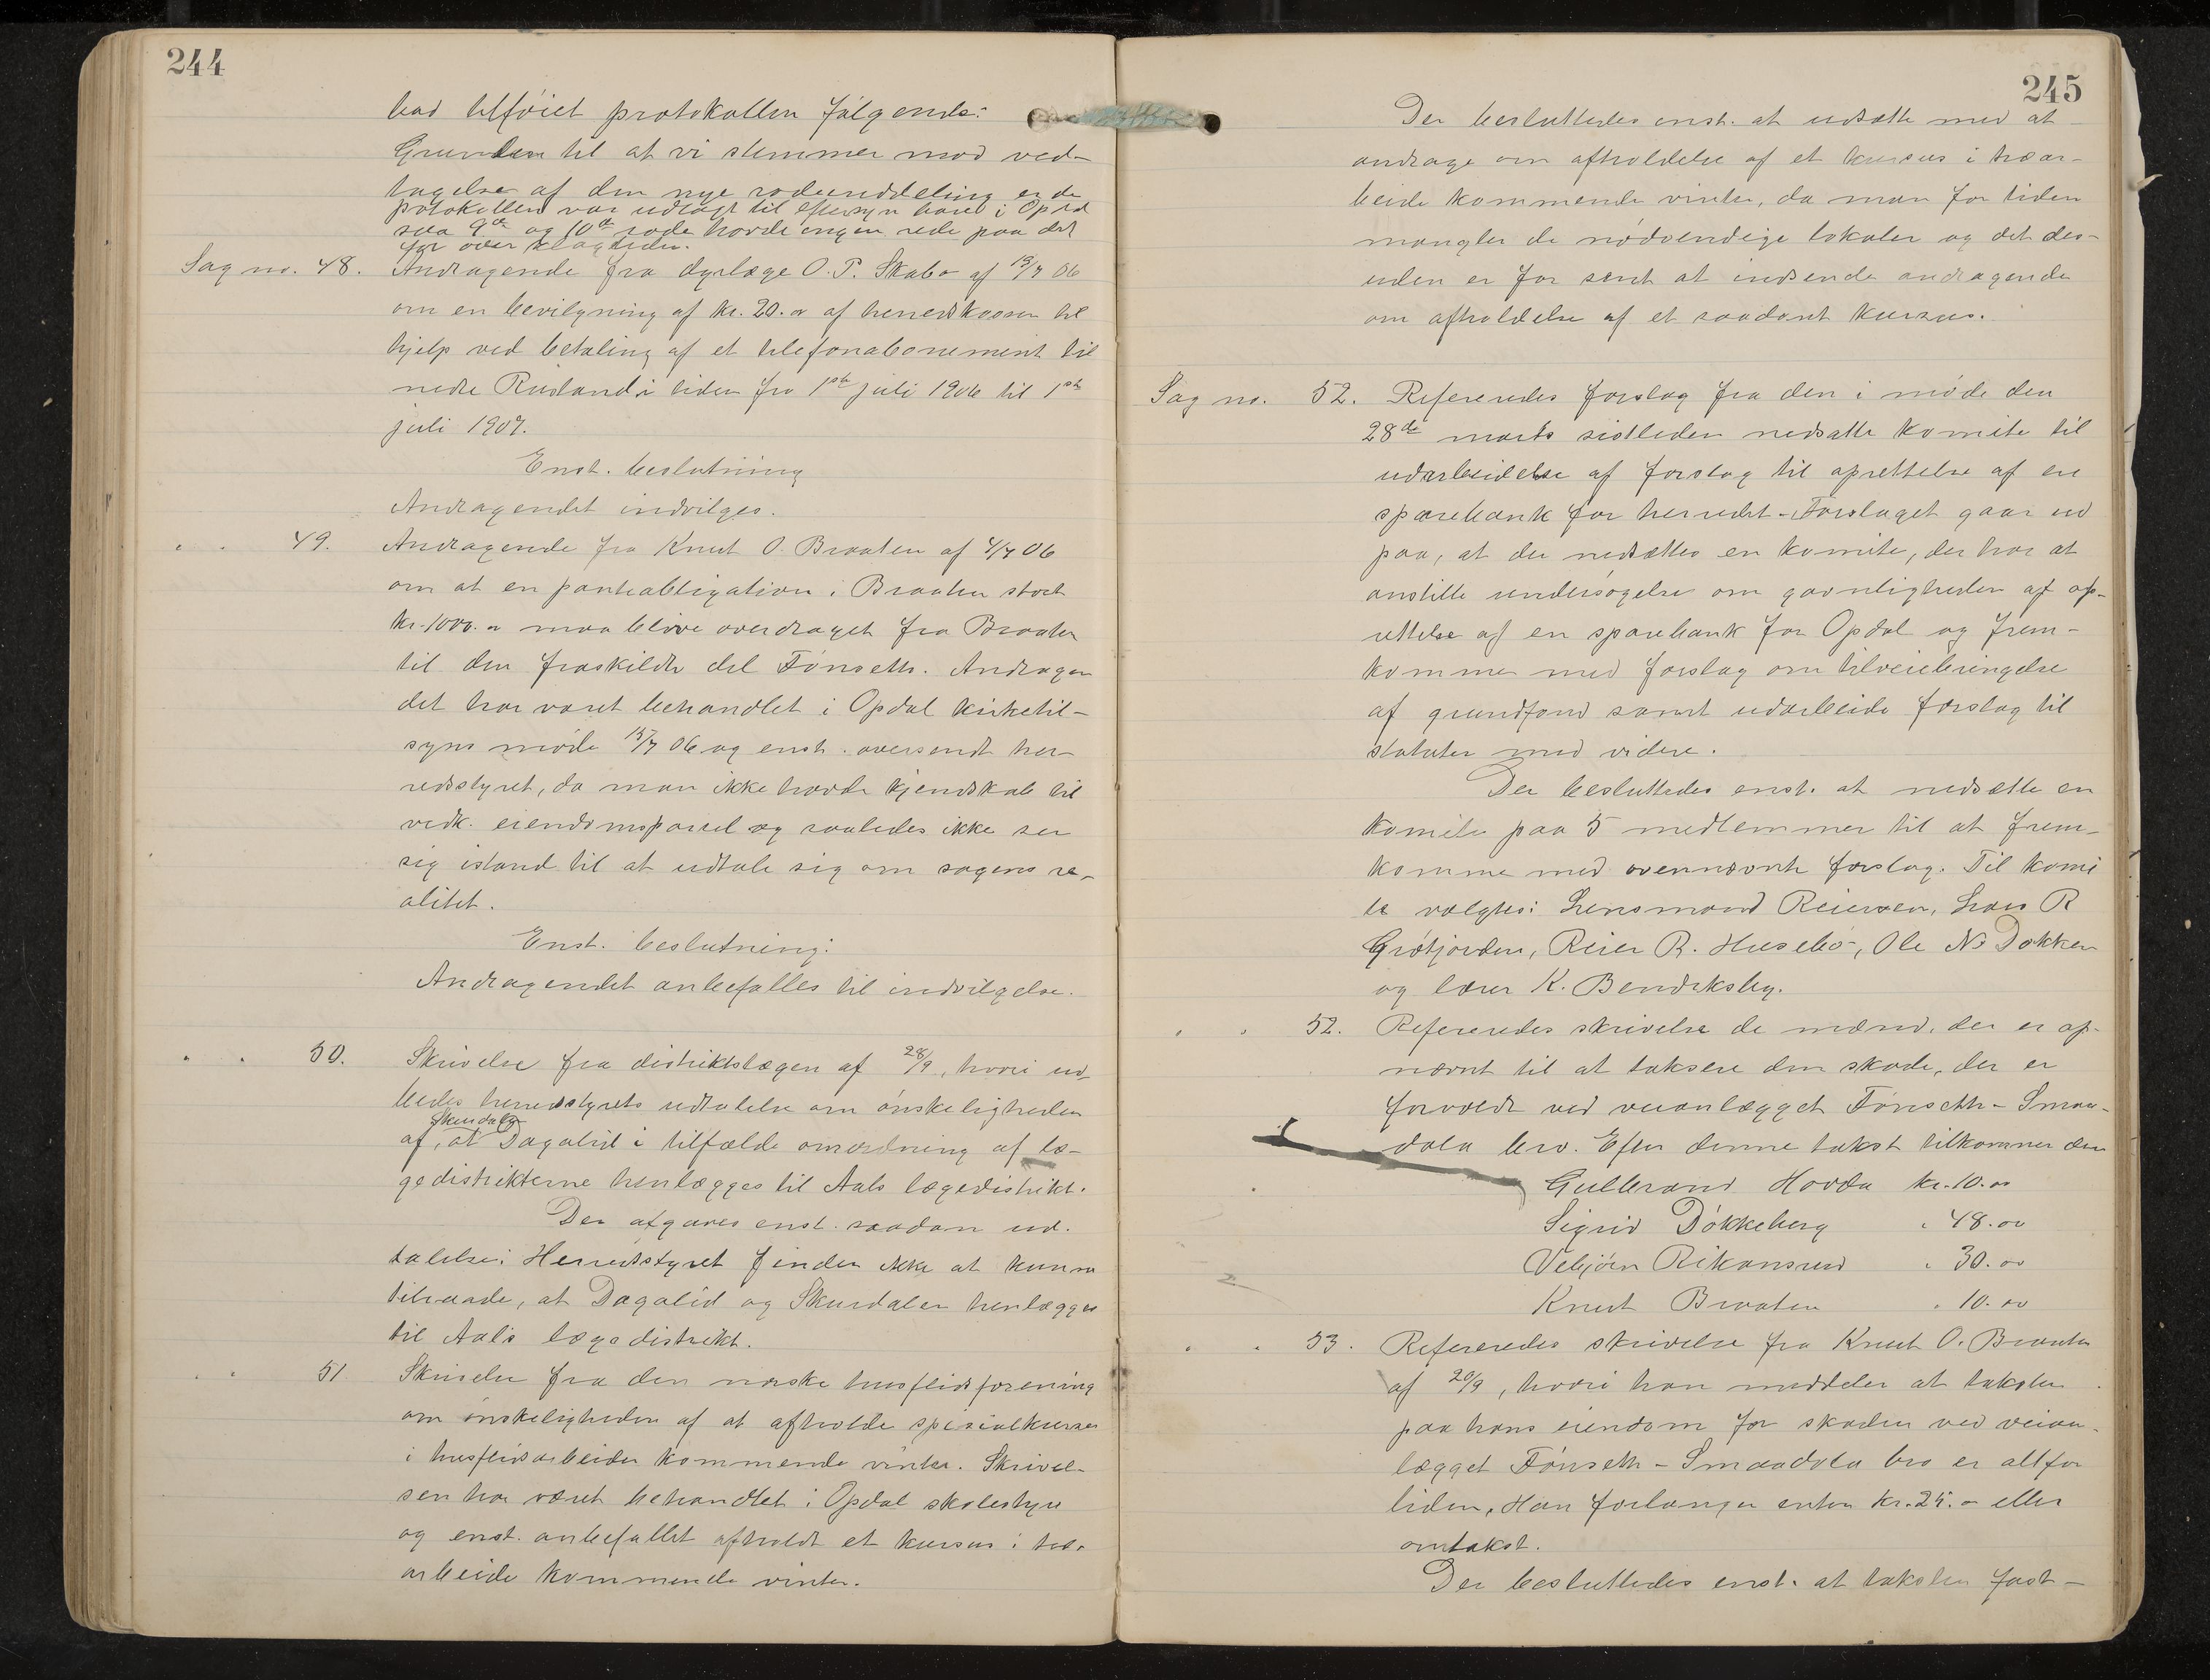 244
bad tilføiet protokollen følgende:
Grunden til at vi stemmer mod ved-
tagelse af den nye rodeinddeling er da
protokollen var udlagt til eftersyn bare i Opdal
saa 9de og 10de rode havde ingen rede paa det
før over klagtiden.
Sag no. 48. Andragende fra dyrlæge O. P. Skabo af 19/7 06
om en bevilgning af kr. 20.00 af herredskassen til
hjelp ved betaling af et telefonabonement til
nedre Rusland i tiden fra 1ste juli 1906 til 1ste
juli 1907.
Enst. beslutning
Andragendet indvilges.
" " 49. Andragende fra Knut O. Braaten af 4/7 06
om at en panteobligation i Braaten stort
kr. 1000.00 maa blive overdraget fra Braaten
til den fraskildte del Fønseth. Andragen
det har været behandlet i Opdal kirketil-
syns møde 15/7 06 og enst. oversendt her-
redsstyret, da man ikke havde kjendskab til
vedk. eiendomsparcel og saaledes ikke ser
sig istand til at udtale sig om sagens re-
alitet.
Enst. beslutning:
Andragendet anbefalles til indvilgelse.
" " 50. Skrivelse fra distriktslægen af 28/9, hvori ud-
bedes herredsstyrets udtalelse om ønskeligheden
Skurdalen
af, at Dagalid i tilfælde omordning af læ-
gedistrikterne henlægges til Aals lægedistrikt.
Der afgaves enst. saadan ud-
talelse: Herredsstyret finder ikke at kunne
tilraade, at Dagalid og Skurdalen henlægges
til Aals lægedistrikt.
" " 51 Skrivelse fra den norske husflidsforening
om ønskeligheden af at afholde spesialkurser
i husflidsarbeider kommende vinter. Skrivel-
sen har været behandlet i Opdal skolestyre
og enst. anbefallet afholdt et kursus i træ-
arbeide kommende vinter.
245
Der besluttedes enst. at udsætte med at
andrage om afholdelse af et kursus i træar-
beide kommende vinter, da man for tiden
mangler de nødvendige lokaler og det des-
uden er for sent at indsende andragende
om afholdelse af et saadant kursus.
Sag no. 52. Refereredes forslag fra den i møde den
28de marts sistleden nedsatte komite til
udarbeidelse af forslag til oprettelse af en
sparebank for herredet. - Forslaget gaar ud
paa, at der nedsættes en komite, der har at
anstille undersøgelse om gavnligheden af op-
rettelse af en sparebank for Opdal og frem-
komme med forslag om tilveiebringelse
af grundfond samt udarbeide forslag til
statuter med videre.
Der besluttedes enst. at nedsætte en
komite paa 5 medlemmer til at frem-
komme med ovennævnte forslag. Til komi
te valgtes: Lensmand Reiersen, Lars R
Grøtjorden, Reier R. Husebø, Ole N. Dokken
og lærer K. Bendiksby.
" " 52. Refereredes skrivelse de mænd, der er op-
nævnt til at taksere den skade, der er
forvoldt ved veianlægget Fønseth - Smaa-
døla bro. Efter denne takst tilkommer den
Gulbrand Hovda kr. 10.00
Sigrid Døkkeberg " 48.00
Vebjørn Rikansrud " 30.00
Knut Braaten " 10.00
" " 53. Refereredes skrivelse fra Knut O. Braaten
af 20/9, hvori han meddeler at taksten
paa hans eiendom for skaden ved veian-
lægget Fønseth - Smaadøla bro er alt for
liden, Han forlanger enten kr. 25.- eller
omtakst.
Der besluttedes enst. at taksten fast-